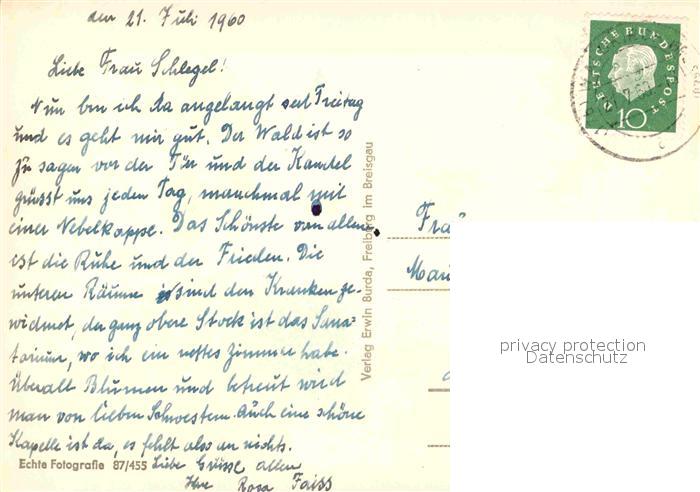 den 21. Juli 1960
Liebe Frau Schlegel!
Nun bin ich da angelangt seit Freitag
und es geht mir gut. Der Wald ist so
zu sagen vor der Tür und der Kandel
grüsst uns jeden Tag, manchmal mit
einer Nebelkappe. Das Schönste von allem,
ist die Ruhe und der Frieden. Die
unteren Räume sind den Kranken ge-
widmet, der ganz obere Stock ist das Sana-
torium, wo ich ein nettes Zimmer habe.
Überall Blumen und betreut wird
man von lieben Schwestern. Auch eine schöne
Kapelle ist da, es fehlt also an nichts.
Liebe Grüsse allen
Ihre Rosa Faiss
Echte Fotografie 87/455
Verlag Erwin Burda, Freiburg im Breisgau
DEUTSCHE BUNDESPOST
10
Frau
Mari
privacy protection
Datenschutz